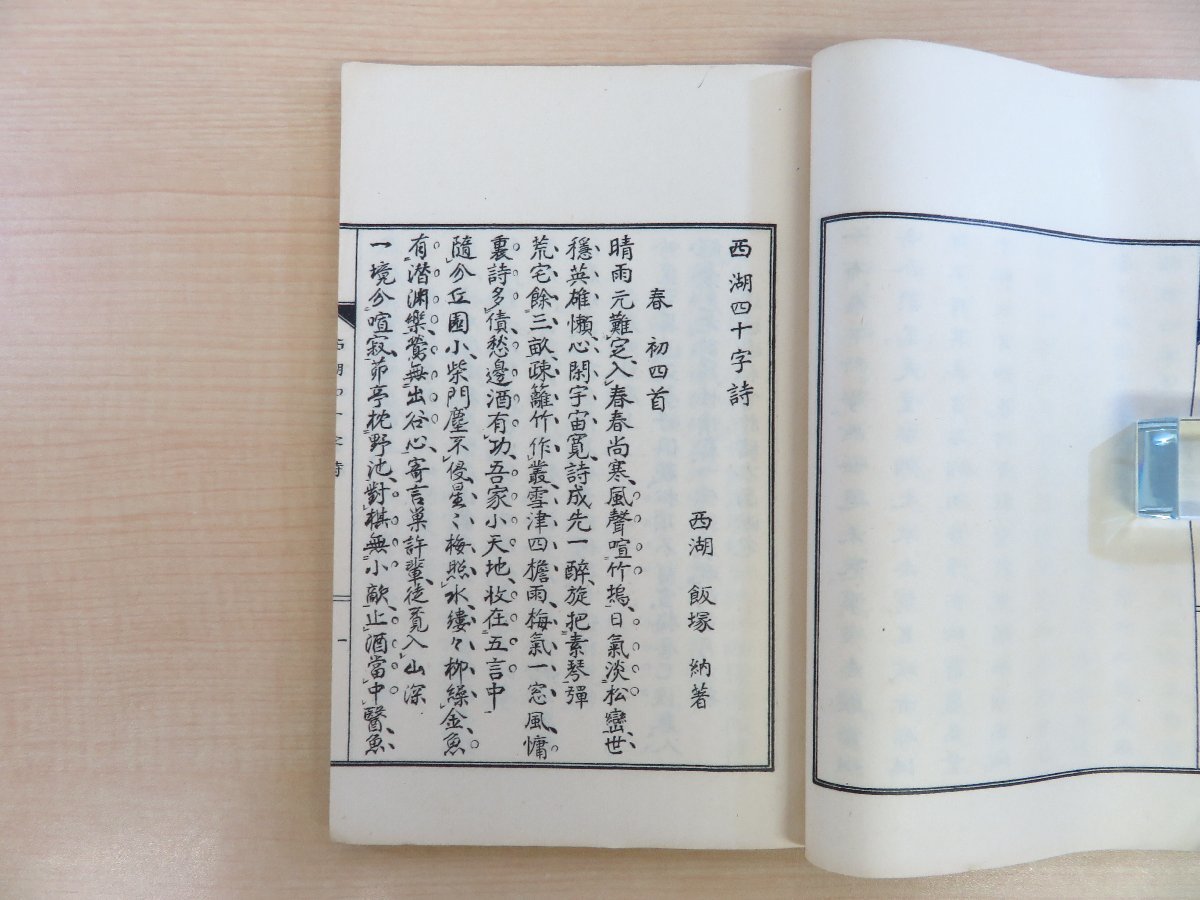 西湖四十字詩
西湖 飯塚 納著
春 初四首
晴雨元難定入春春尚寒風聲喧竹塢日氣淡松巒世
穩英雄懶心閑宇宙寬詩成先一醉旋把素琴彈
荒宅餘三畝疎籬竹作叢雪津四檐雨梅氣一窓風慵
裏詩多債愁邊酒有功吾家小天地收在五言中
隨分丘園小柴門塵不侵星〻梅照水縷々柳繰金魚
有潛淵樂鶯無出谷心寄言巢許輩徒覓入山深
一境分喧寂茆亭枕野池對棋無小敵止酒當中醫魚
西湖四十字詩
一